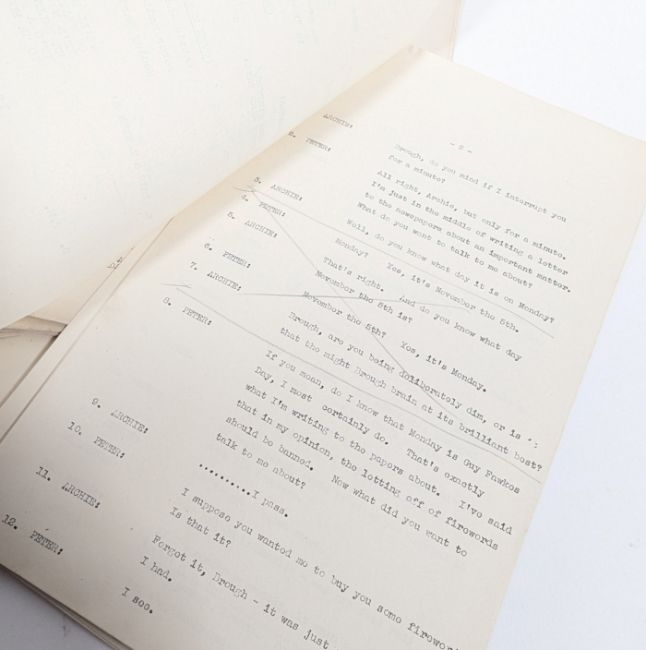 - 2 -
ARCHIE: Brough, do you mind if I interrupt you
for a minute?
2. PETER: All right, Archie, but only for a minute.
I'm just in the middle of writing a letter
to the newspapers about an important matter.
What do you want to talk to me about?
3. ARCHIE: Well, do you know what day it is on Monday?
4. PETER: Monday? Yes, it's November the 5th.
5. ARCHIE: That's right. And do you know what day
November the 5th is?
6. PETER: November the 5th? Yes, it's Monday.
7. ARCHIE: Brough, are you being deliberately dim, or is
that the night Brough brain at its brilliant best?
8. PETER: If you mean, do I know that Monday is Guy Fawkes
Day, I most certainly do. That's exactly
what I'm writing to the papers about. I've said
that in my opinion, the letting off of fireworks
should be banned. Now what did you want to
talk to me about?
9. ARCHIE: ..........I pass.
10. PETER: I suppose you wanted me to buy you some firewor
Is that it?
11. ARCHIE: Forget it, Brough - it was just
I had.
12. PETER: I see.